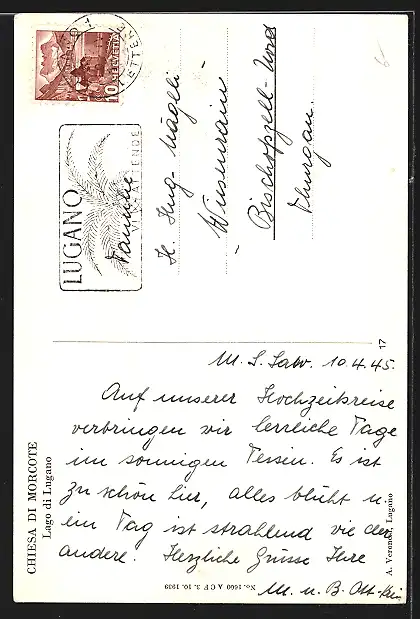 LUGANO
VI ATTENDE
HELVETIA
10
Familie
H. Hug-Nägeli
Wiesenrain
Bischofszell-Nord
Thurgau.
17
10.4.45.
Auf unserer Hochzeitsreise
verbringen wir herrliche Tage
im sonnigen Tessin. Es ist
zu schön hier, alles blüht u.
ein Tag ist strahlend wie der
andere. Herzliche Grüsse Ihre
M. u. B. Ott-
CHIESA DI MORCOTE
Lago di Lugano
No. 1600 A C F 3. 10. 1939
A. Veronesi, Lugano